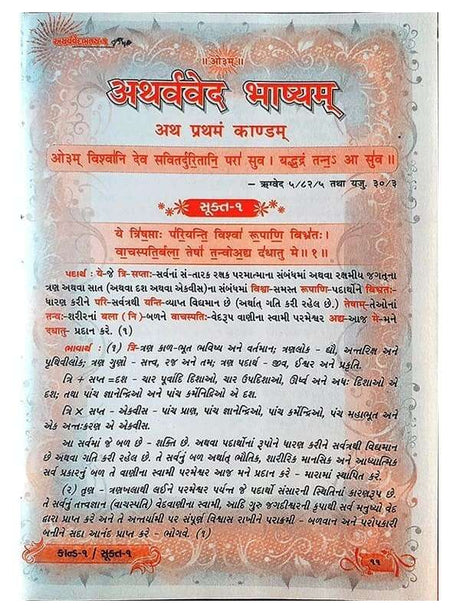 ॥ ओ३म् ॥
અથર્વવેદ ભાષ્યમ્
અથ પ્રથમં કાણ્ડમ્
ओ३म् विश्वा॑नि देव सवितर्दुरि॒तानि॒ परा॑ सुव । यद्भ॒द्रं तन्न॒ऽ आ सु॑व ॥
– ઋગ્વેદ ૫/૮૨/૫ તથા યજુ. ૩૦/૩
સૂક્ત-૧
ये त्रि॑ष॒प्ताः प॑रि॒यन्ति॒ विश्वा॑ रू॒पाणि॒ बिभ्र॑तः ।
वा॒चस्पति॒र्बला॒ तेषां॑ त॒न्वो॑अ॒द्य द॑धातु मे ॥ १ ॥
પદાર્થ : યે-જે ત્રિ-સપ્તાઃ-સર્વનાં સં-તારક રક્ષક પરમાત્માના સંબંધમાં અથવા રક્ષણીય જગત્‌ના
ત્રણ અથવા સાત (અથવા દશ અથવા એકવીસ)ના સંબંધમાં વિશ્વા-સમસ્ત રૂપાણિ-પદાર્થોને બિભ્રતઃ
ધારણ કરીને પરિ-સર્વત્રથી યન્તિ-વ્યાપ્ત વિદ્યમાન છે (અર્થાત્ ગતિ કરી રહેલ છે.) તેષામ્-તેઓનાં
તન્વઃ-શરીરનાં બલા (નિ)-બળને વાચસ્પતિઃ-વેદરૂપ વાણીના સ્વામી પરમેશ્વર અદ્ય-આજ મે-મને
દધાતુ- પ્રદાન કરે. (૧)
ભાવાર્થ : (૧) ત્રિ-ત્રણ કાળ-ભૂત ભવિષ્ય અને વર્તમાન; ત્રણલોક - દ્યૌ, અન્તરિક્ષ અને
પૃથિવીલોક; ત્રણ ગુણો - સત્ત્વ, રજ અને તમ; ત્રણ પદાર્થ - જીવ, ઈશ્વર અને પ્રકૃતિ.
ત્રિ + સપ્ત =દશ - ચાર પૂર્વાદિ દિશાઓ, ચાર ઉપદિશાઓ, ઊર્ધ્વ અને અધઃ દિશાઓ એ
દશ; તથા પાંચ જ્ઞાનેન્દ્રિઓ અને પાંચ કર્મેનિદ્રિઓ એ દશ.
ત્રિ × સપ્ત - એકવીસ - પાંચ પ્રાણ, પાંચ જ્ઞાનેન્દ્રિઓ, પાંચ કર્મઇન્દ્રિઓ, પાંચ મહાભૂત અને
એક અન્તઃકરણ એ એકવીસ.
આ સર્વમાં જે બળ છે - શક્તિ છે. અથવા પદાર્થોનાં રૂપોને ધારણ કરીને સર્વત્રથી વિદ્યમાન
છે અથવા ગતિ કરી રહેલ છે. તે સર્વનું બળ અર્થાત્ ભૌતિક, શારીરિક માનસિક અને આધ્યાત્મિક
સર્વ પ્રકારનું બળ તે વાણીના સ્વામી પરમેશ્વર આજ મને પ્રદાન કરે - મારામાં સ્થાપિત કરે.
(૨) તૃણ - ત્રણખલાથી લઈને પરમેશ્વર પર્યન્ત જે પદાર્થો સંસારની સ્થિતિનાં કારણરૂપ છે.
તે સર્વનું તત્ત્વજ્ઞાન (વાચસ્પતિ) વેદવાણીના સ્વામી, આદિ ગુરુ જગદીશ્વરની કૃપાથી સર્વ મનુષ્યો વેદ
દ્વારા પ્રાપ્ત કરે અને તે અન્તર્યામી પર સંપૂર્ણ વિશ્વાસ રાખીને પરાક્રમી - બળવાન અને પરોપકારી
બનીને સદા આનંદ પ્રાપ્ત કરે - ભોગવે. (૧)
કાન્ડ-૧ / સૂક્ત-૧
૧૧